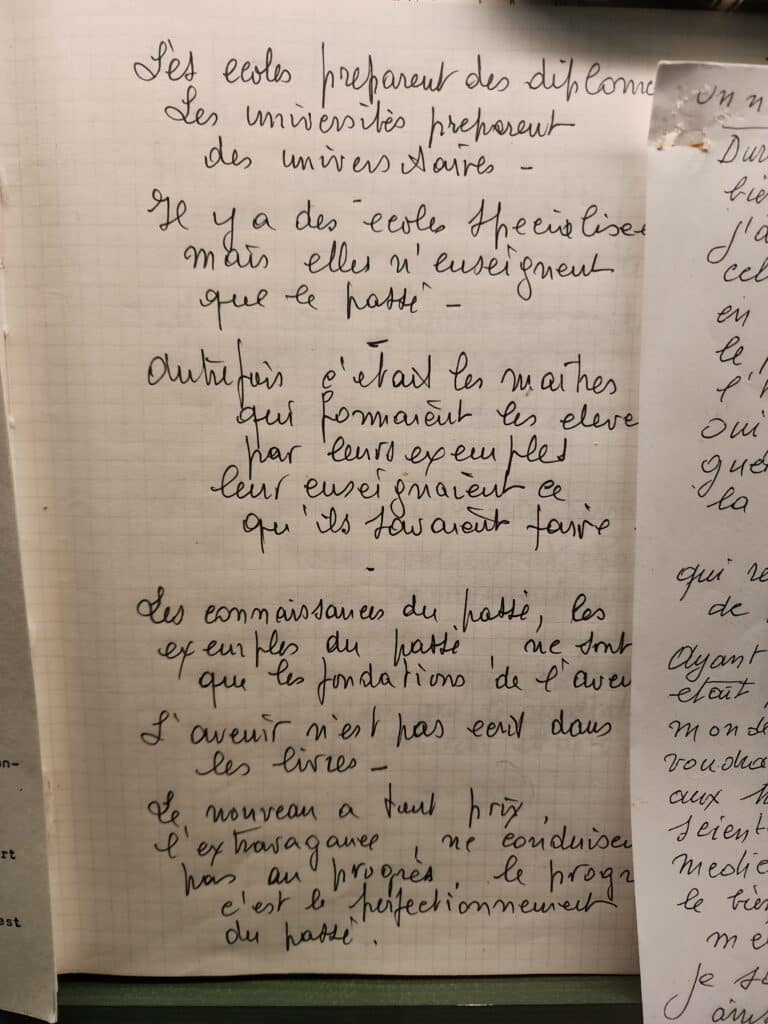 Les ecoles preparent des diplome
Les universités preparent
des universitaires -
Il y a des ecoles specialisee
mais elles n'enseignent
que le passé -
Autrefois c'était les maitres
qui formaient les eleve
par leurs exemples
leur enseignaient ce
qu'ils savaient faire
Les connaissances du passé, les
exemples du passé, ne sont
que les fondations de l'aven
L'avenir n'est pas ecrit dans
les livres -
Le nouveau a tout prix,
l'extravagance, ne conduisen
pas au progrès, le progr
c'est le perfectionnement
du passé.
un n
Dur
bie
j'a
cel
en
le
l'
oui
gué
la
qui re
de
Ayant
etait
monde
voudra
aux
scient
medic
le bie
me
je s
ains
n-
rt
est